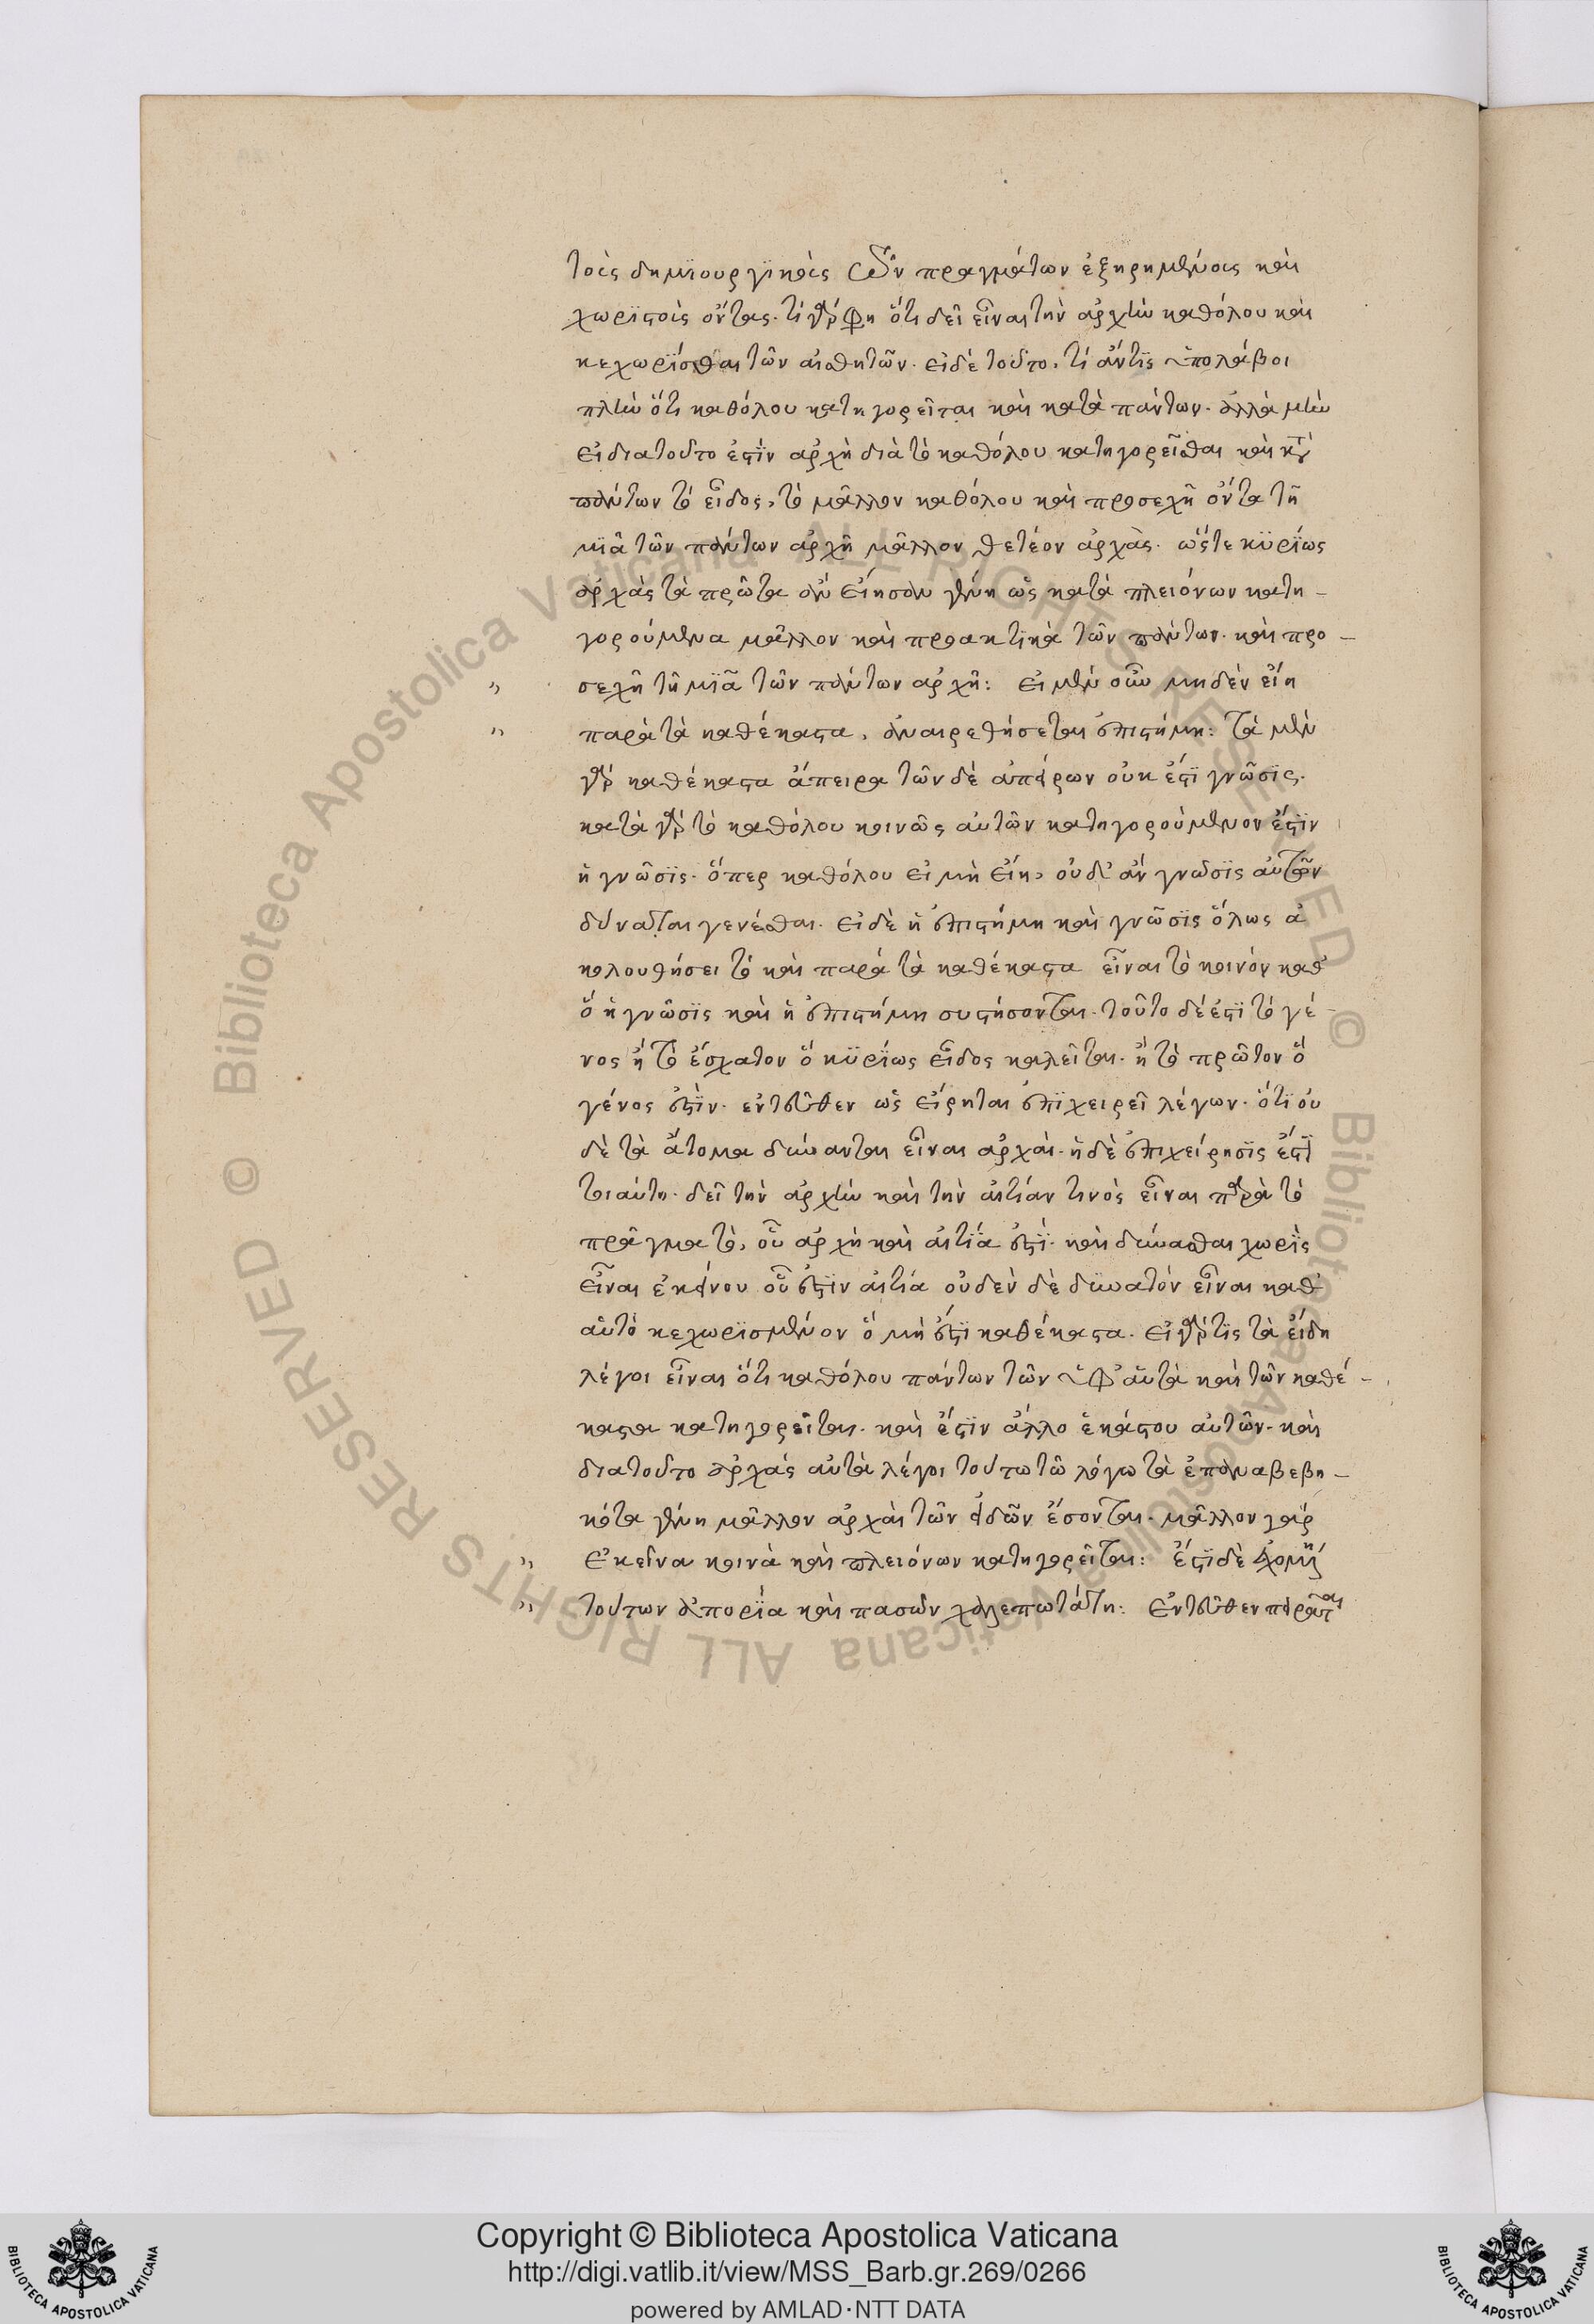 τοὶς δημϊουργϊκὰις τῶν πραγμάτων ἐξηρημένοις καὶ
χωρϊστοὶς ὄντας. τί γάρ φη ὅτι δεῖ εἶναι τὴν ἀρχὴν καθόλου καὶ
κεχωρϊσθαι τῶν αἰσθητῶν. εἰδὲ τοῦτο, τί ἄντϊς ὑπολάβοι
πλὴν ὅτι καθόλου κατηγορεῖται καὶ κατὰ πάντων. ἀλλὰ μὴν
εἰ διατοῦτο ἐστϊν ἀρχὴ διὰ τὸ καθόλου κατηγορεῖσθαι καὶ κτ
πάντων τὸ εἶδος, τὸ μᾶλλον καθόλου καὶ προσεχῆ ὄντα τῆ
μϊᾶ τῶν πάντων ἀρχῆ μᾶλλον θετέον ἀρχὰς. ὥστε κϋρίως
ἀρχὰς τὰ πρῶτα ἂν εἴησαν γένη ὡς κατὰ πλειόνων κατη-
γορούμενα μᾶλλον καὶ προακτϊκὰ τῶν πάντων. καὶ προ-
" σεχῆ τῆ μϊᾶ τῶν πάντων ἀρχῆ: εἰ μὲν οὖν μηδὲν εἴη
" παρὰ τὰ καθέκαστα, ἀναιρεθήσεται ἐπιστήμη: τὰ μὲν
γὰρ καθέκαστα ἄπειρα τῶν δὲ ἀπείρων οὐκ ἔστϊ γνῶσϊς.
κατὰ γὰρ τὸ καθόλου κοινῶς αὐτῶν κατηγορούμενον ἔστϊν
ἡ γνῶσϊς. ὅπερ καθόλου εἰ μὴ εἴη, οὐδ' ἂν γνῶσϊς αὐτῶν
δύναται γενέσθαι. εἰ δὲ ἡ ἐπιστήμη καὶ γνῶσϊς ὅλως ἀ
κολουθήσει τὸ καὶ παρὰ τὰ καθέκαστα εἶναι τὸ κοινὸν καθ'
ὅ ἡ γνῶσϊς καὶ ἡ ἐπιστήμη συστήσονται. τοῦτο δέ ἐστϊ τὸ γέ
νος ἢ τὸ ἔσχατον ὅ κϋρίως εἶδος καλεῖται. ἢ τὸ πρῶτον ὅ
γένος ἐστϊν. ἐντεῦθεν ὡς εἴρηται ἐπϊχειρεῖ λέγων. ὅτϊ οὐ
δὲ τὰ ἄτομα δύνανται εἶναι ἀρχὰι. ἡ δὲ ἐπιχείρησϊς ἔστϊ
τοιαύτη. δεῖ τὴν ἀρχὴν καὶ τὴν αἰτίαν τινὸς εἶναι παρὰ τὸ
πρᾶγμα τὸ, οὗ ἀρχὴ καὶ αἰτϊα ἐστϊ. καὶ δύνασθαι χωρϊς
εἶναι ἐκείνου οὗ ἐστϊν αἰτία οὐδεν δὲ δϋνατὸν εἶναι καθ'
αὑτὸ κεχωρϊσμένον ὅ μὴ ἐστϊ καθέκαστα. εἰ γάρ τϊς τὰ εἴδη
λέγοι εἶναι ὅτι καθόλου πάντων τῶν ὑφ' αὑτὰ καὶ τῶν καθέ-
καστα κατηγορεῖται. καὶ ἔστϊν ἄλλο ἑκάστου αὐτῶν. καὶ
διατοῦτο ἀρχὰς αὐτὰ λέγοι τούτω τῶ λόγω τὰ ἐπαναβεβη-
κότα γένη μᾶλλον ἀρχὰι τῶν εἰδῶν ἔσονται. μᾶλλον γάρ
" Ἐκεῖνα κοινὰ καὶ πλειόνων κατηγορεῖται: ἔστϊ δὲ ἐχομένη
" τούτων ἀπορϊα καὶ πασῶν χαλεπωτάτη: Ἐντεῦθεν πειρᾶται
Biblioteca Apostolica Vaticana ALL RIGHTS RESERVED © Biblioteca Apostolica Vaticana ALL RIGHTS RESERVED ©
Copyright © Biblioteca Apostolica Vaticana
http://digi.vatlib.it/view/MSS_Barb.gr.269/0266
powered by AMLAD·NTT DATA
BIBLIOTECA APOSTOLICA VATICANA
BIBLIOTECA APOSTOLICA VATICANA